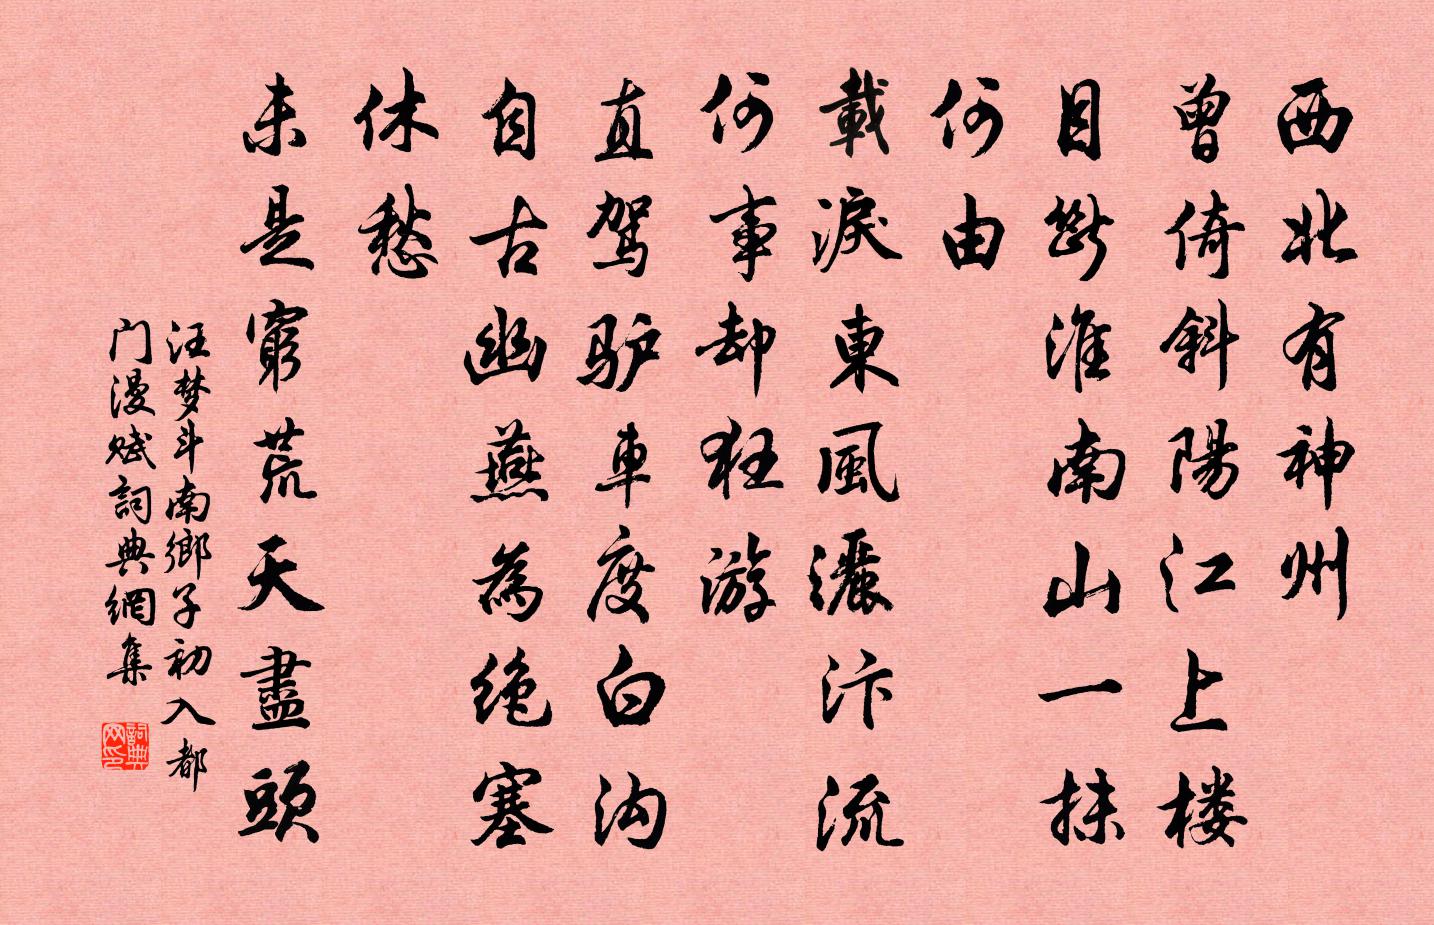 西北有神州
曾倚斜陽江上楼
目断淮南山一抹
何由
載淚東風灑汴流
何事却狂游
直駕驴車度白沟
自古幽燕為绝塞
休愁
未是窮荒天盡頭
汪梦斗南鄉子初入都
门漫赋詞典網集
詞典
网印